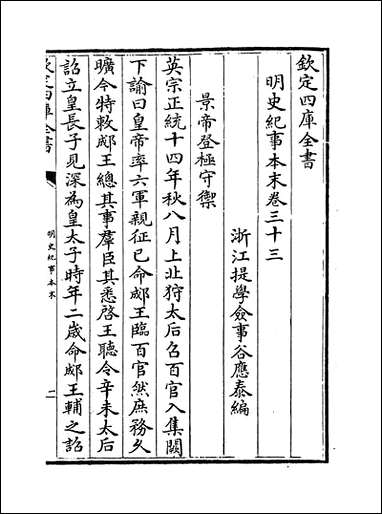 欽定四庫全書
明史紀事本末卷三十三
浙江提學僉事谷應泰編
景帝登極守禦
英宗正統十四年秋八月上北狩太后召百官入集闕
下諭曰皇帝率六軍親征已命郕王臨百官然庶務久
曠今特敕郕王總其事羣臣其悉啓王聽令辛未太后
詔立皇長子見深為皇太子時年二歳命郕王輔之詔
欽定四庫全書
明史紀事本末